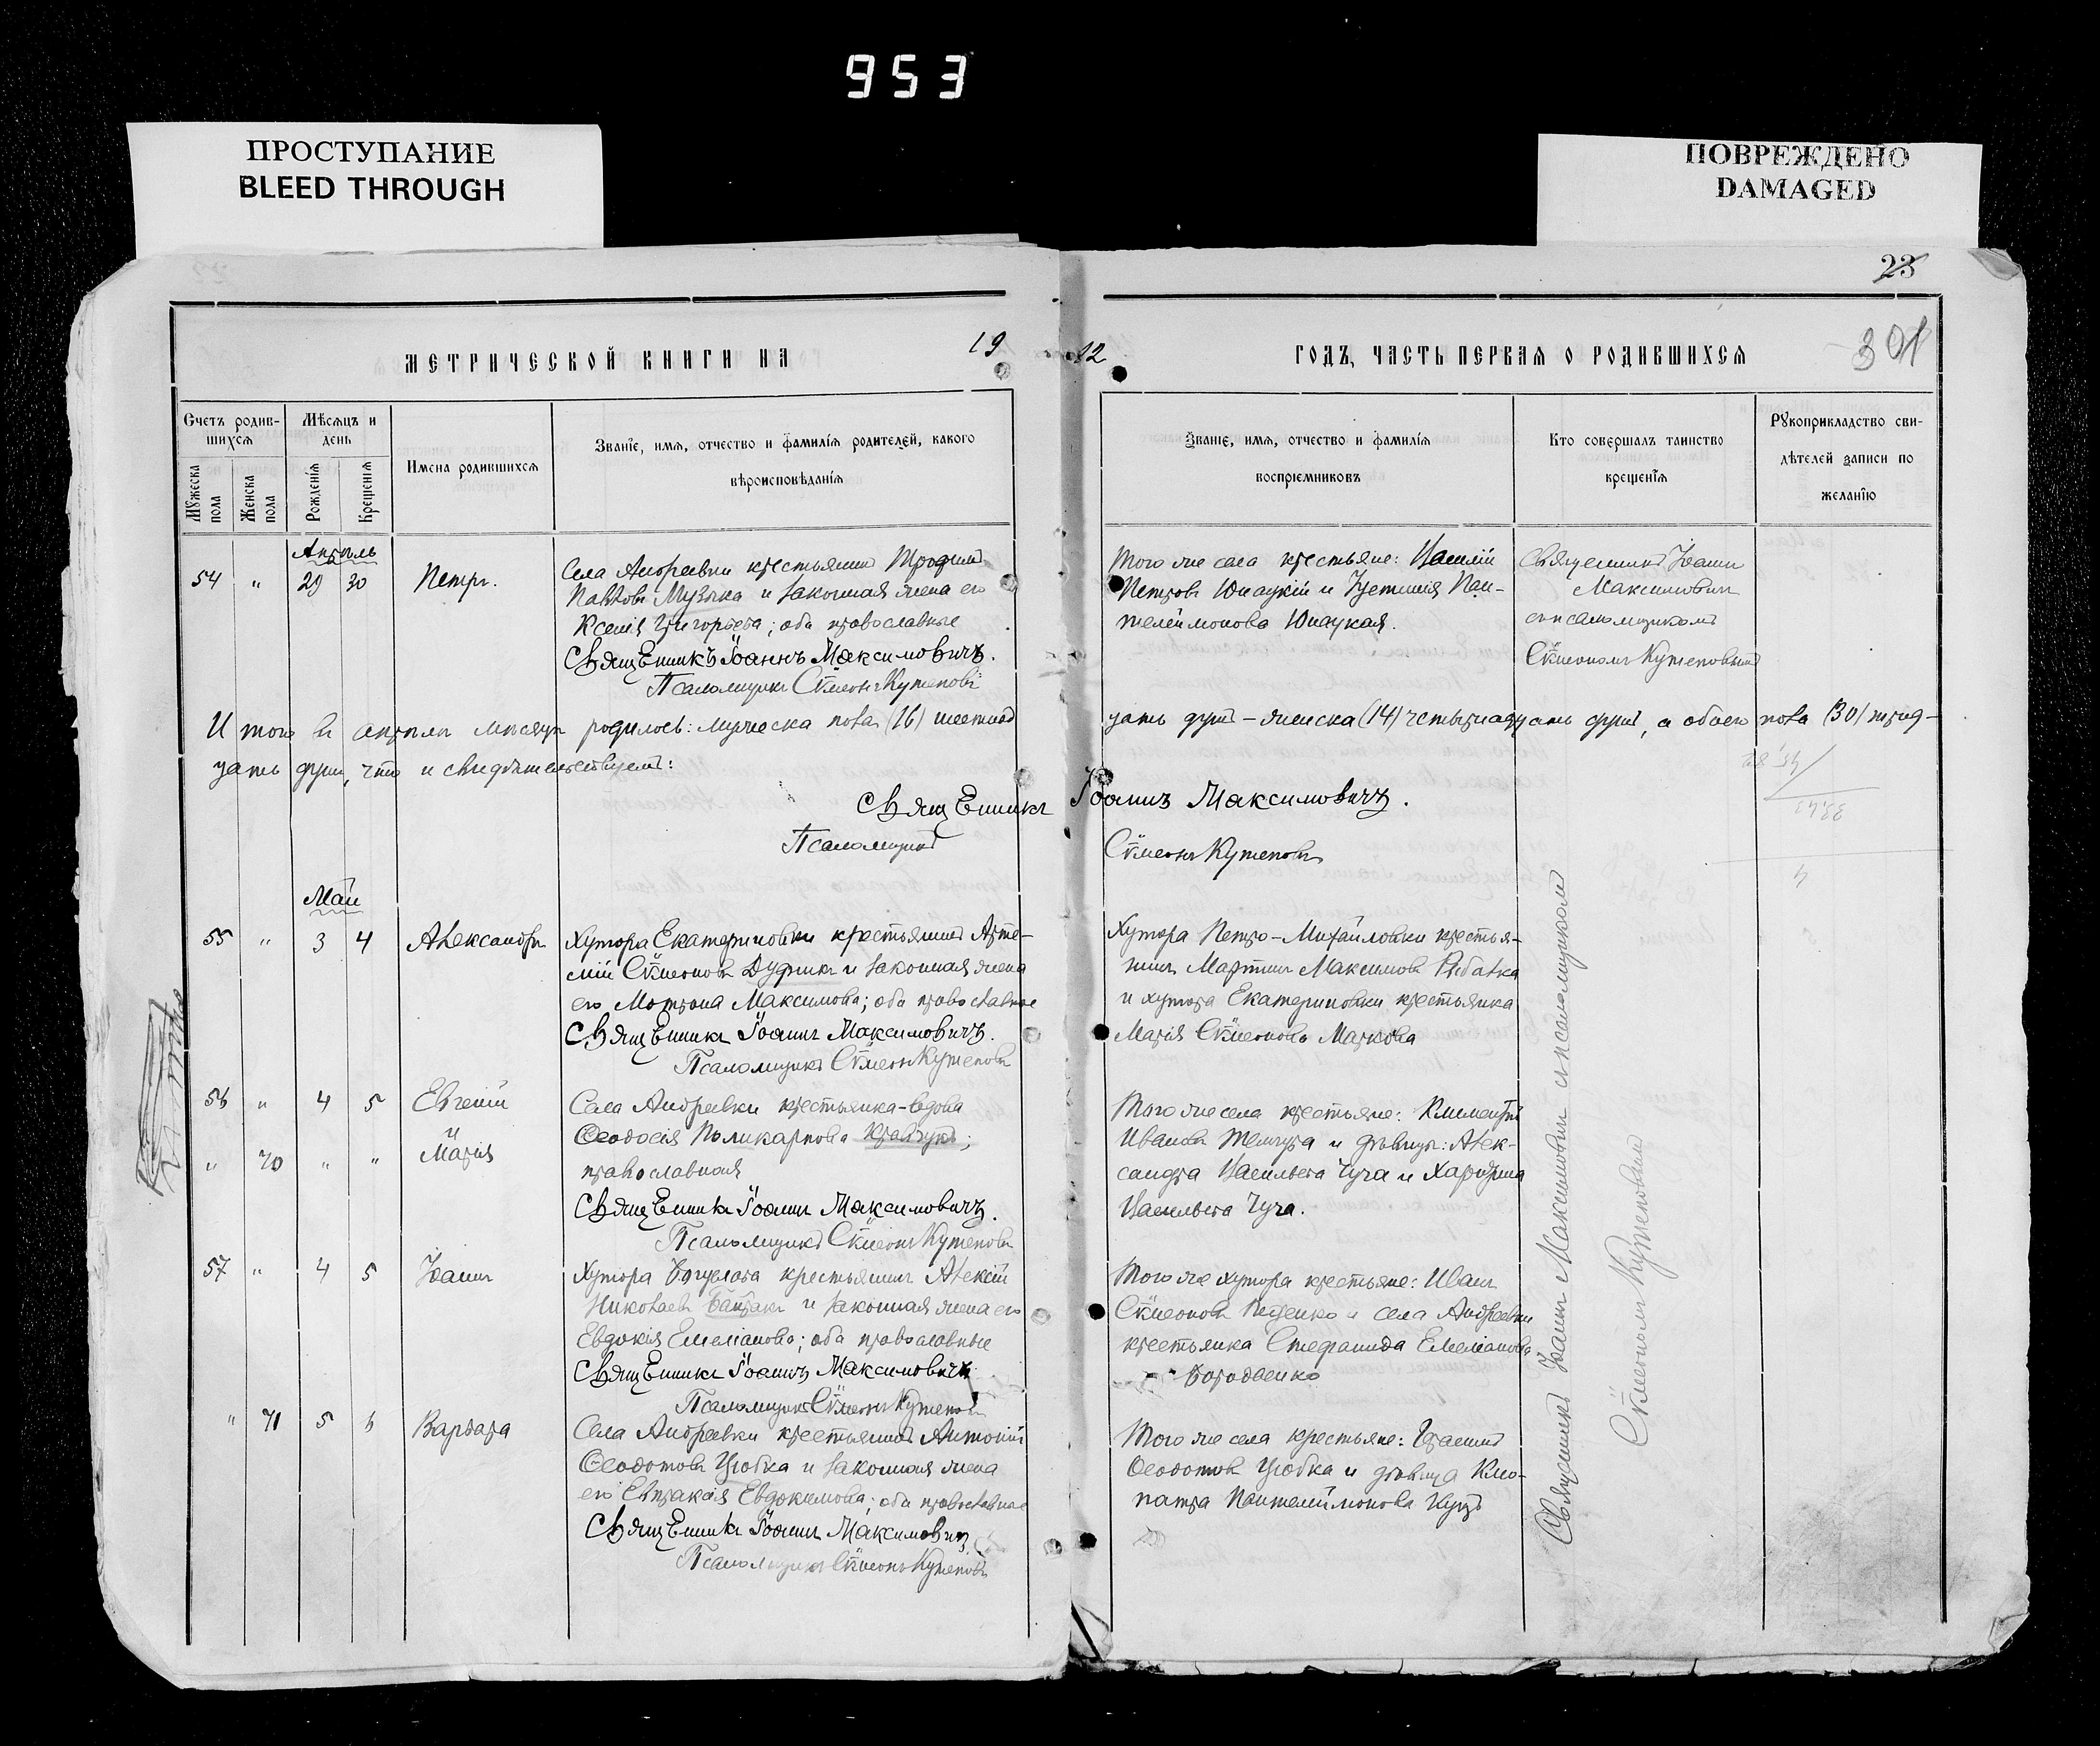 953
ПРОСТУПАНИЕ
BLEED THROUGH
ПОВРЕЖДЕНО
DAMAGED
23
301
МЕТРИЧЕСКОЙ КНИГИ НА 19
12 ГОДЪ, ЧАСТЬ ПЕРВАЯ О РОДИВШИХСЯ
Счетъ родив-
шихся
Мѣсяцъ и
день
Мужеска
пола
Женска
пола
Рожденія
Крещенія
Имена родившихся
Званіе, имя, отчество и фамилія родителей, какого
вѣроисповѣданія
Званіе, имя, отчество и фамилія
воспріемниковъ
Кто совершалъ таинство
крещенія
Рукоприкладство сви-
дѣтелей записи по
желанію
Апрѣль
54 " 29 30 Петръ.
Села Андреевки крестьянинъ Трофимъ
Павловъ Музыка и законная жена его
Ксенія Григорьева; оба православные
Священникъ Іоаннъ Максимовичъ.
Псаломщикъ Сѵмеонъ Кутеповъ
Того же села крестьяне: Василій
Петровъ и Пан-
телеймонова
Священникъ Іоаннъ
Максимовичъ
съ псаломщикомъ
Сѵмеономъ Кутеповымъ
Итого въ апрѣлѣ мѣсяцѣ родилось: мужеска пола (16) шестнад
цать душъ – женска (14) четырнадцать душъ, а обоего пола (30) трид-
цать душъ, что и свидѣтельствуемъ:
Священникъ Іоаннъ Максимовичъ.
Псаломщикъ Сѵмеонъ Кутеповъ
Май
55 " 3 4 Александръ
Хутора Екатериновки крестьянинъ Арте-
мій Сѵмеоновъ Дудникъ и законная жена
его Мотрона Максимова; оба православные
Священникъ Іоаннъ Максимовичъ.
Псаломщикъ Сѵмеонъ Кутеповъ
Хутора Петро-Михайловки крестья-
нинъ Мартинъ Максимовъ Рыбалка
и хутора Екатериновки крестьянка
Марія Сѵмеонова Маркова
56 " 4 5 Евгеній
" 70 " " Марія
Села Андреевки крестьянка-вдова
Ѳеодосія Поликарпова Кравчукъ;
православная
Священникъ Іоаннъ Максимовичъ.
Псаломщикъ Сѵмеонъ Кутеповъ
Того же села крестьяне: Климентій
Ивановъ и дѣвицы: Алек-
сандра Васильева Чуча и Харитина
Васильева Чуча.
57 " 4 5 Іоаннъ
Хутора крестьянинъ Алексій
Николаевъ Байракъ и законная жена его
Евдокія Емеліанова; оба православные
Священникъ Іоаннъ Максимовичъ
Псаломщикъ Сѵмеонъ Кутеповъ
Того же хутора крестьяне: Иванъ
Сѵмеоновъ и села Андреевки
крестьянка Стефанида Емеліанова
Бородаенко
" 71 5 6 Варвара
Села Андреевки крестьянинъ Антоній
Ѳеодотовъ и законная жена
его Евпраксія Евдокимова; оба православные
Священникъ Іоаннъ Максимовичъ
Псаломщикъ Сѵмеонъ Кутеповъ
Того же села крестьяне: Герасимъ
Ѳеодотовъ и дѣвица Клео-
патра Пантелеймонова
Священникъ Іоаннъ Максимовичъ съ псаломщикомъ
Сѵмеономъ Кутеповымъ